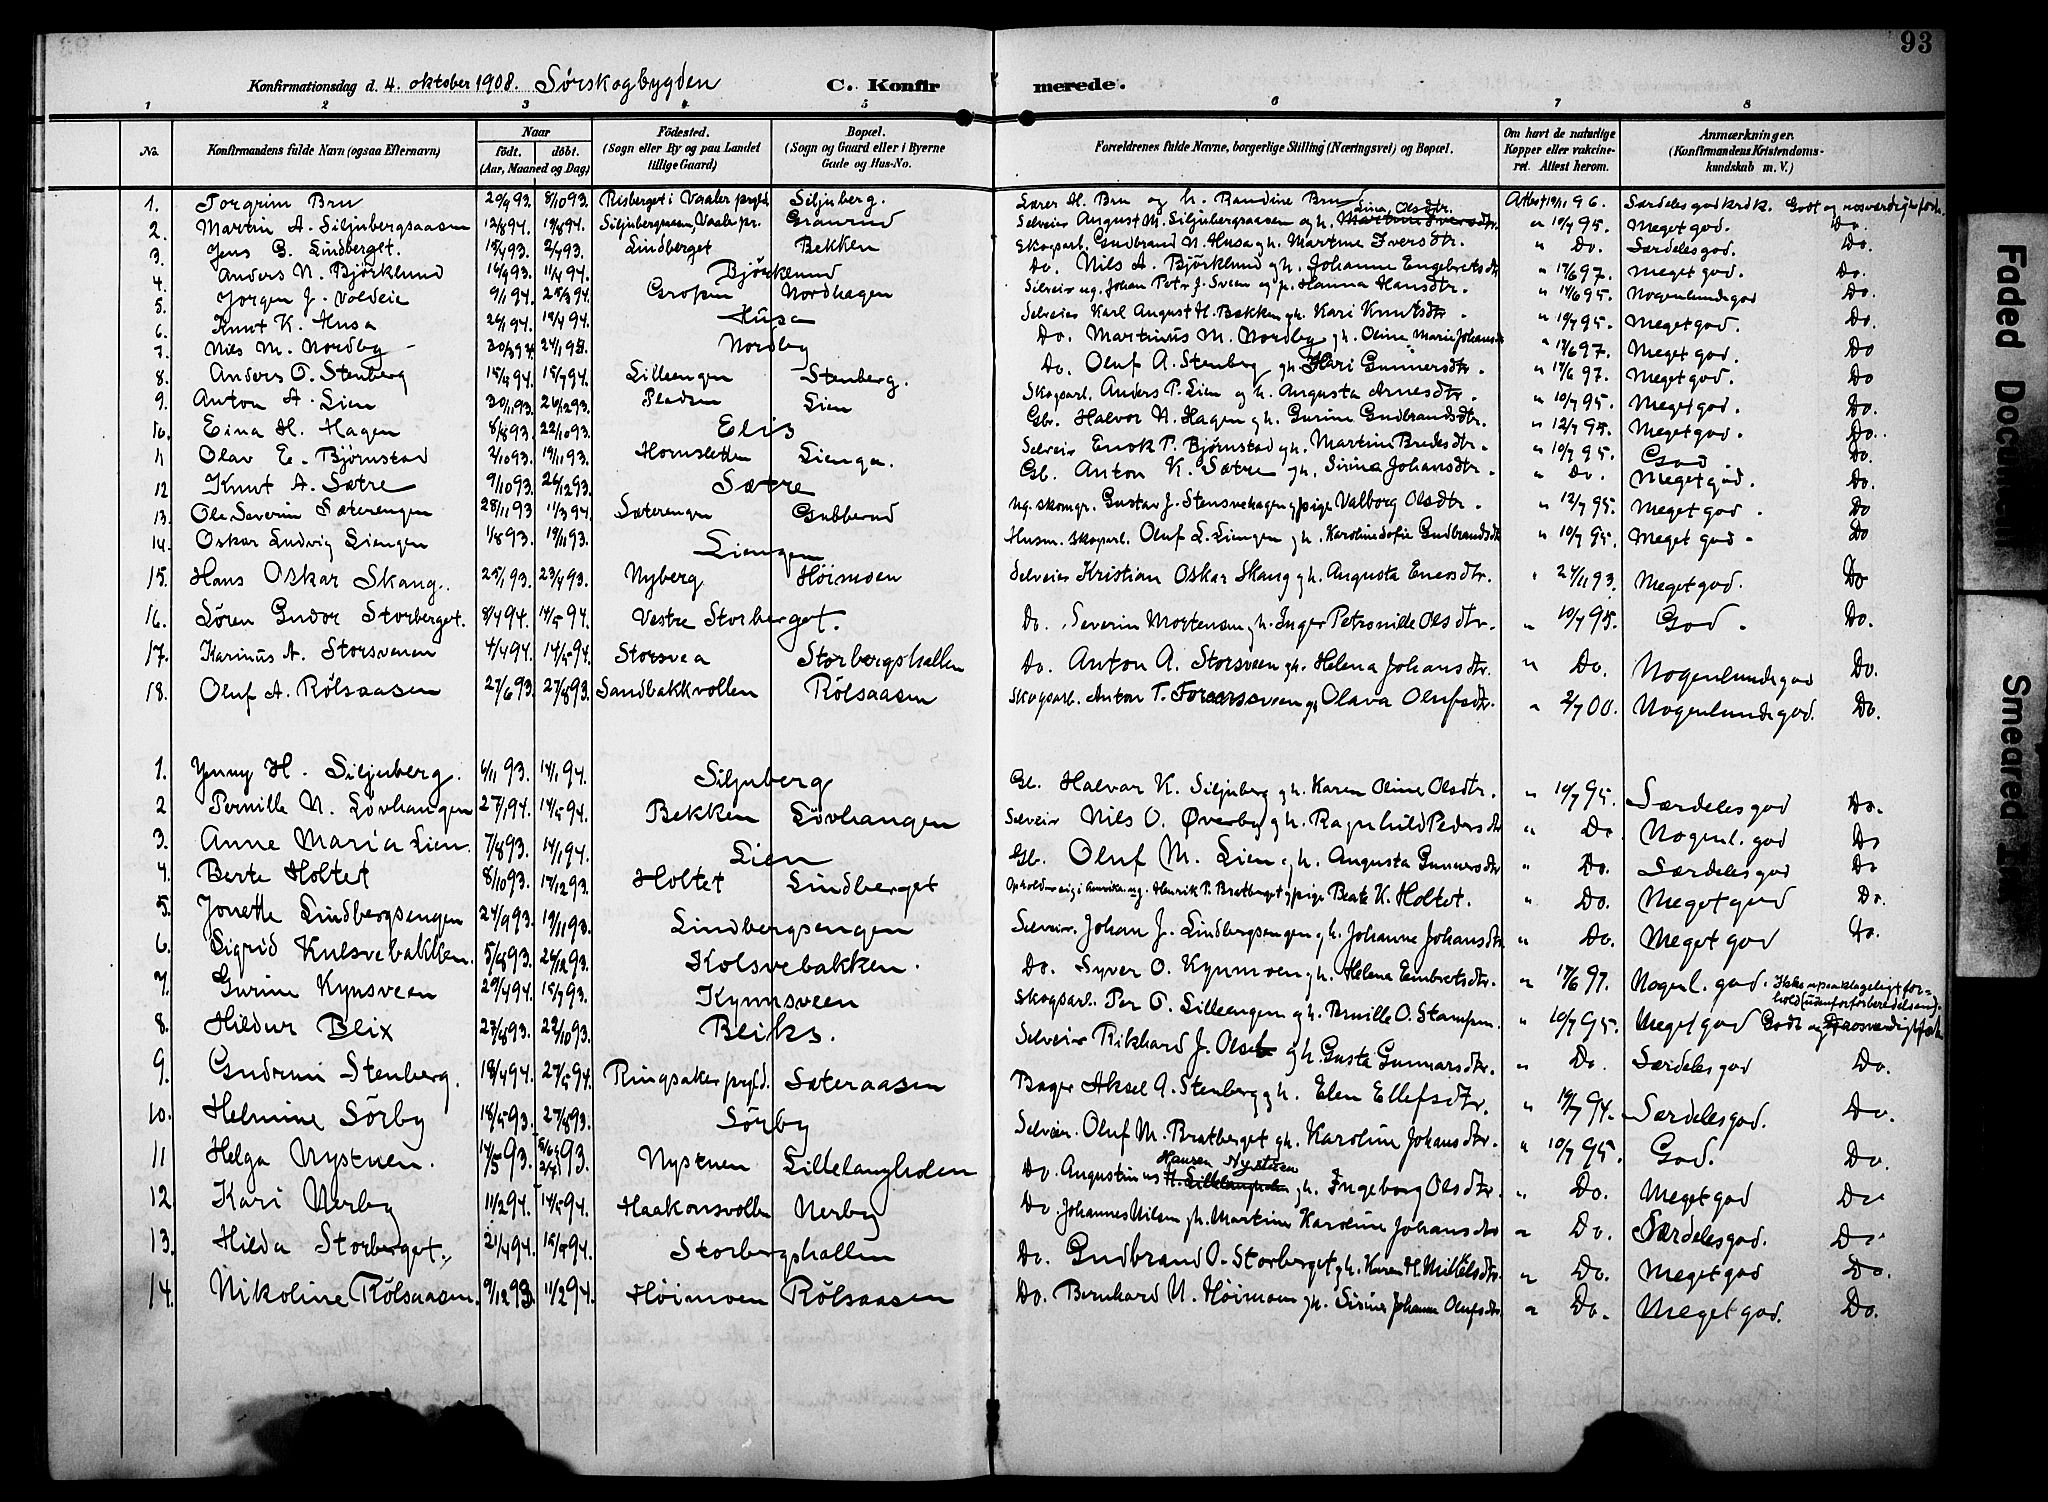 93
Konfirmationsdag d. 4. oktober 1908. Sørskogbygden C. Konfirmerede.
1 2 3 4 5 6 7 8
No. Konfirmandens fulde Navn (ogsaa Efternavn) Naar födt. döbt. (Aar, Maaned og Dag) Födested. (Sogn eller By og paa Landet tillige Gaard) Bopæl. (Sogn og Gaard eller i Byerne Gade og Hus-No. Forældrenes fulde Navne, borgerlige Stilling (Næringsvei) og Bopæl. Om havt de naturlige Kopper eller vakcineret. Attest herom. Anmærkninger. (Konfirmandens Kristendomskundskab m. V.)
1. Torgrim Bru 29/9 93. 8/10 93. Risberget i Vaaler prgld. Siljuberg. Lærer H. Bru og h. Randine Bru Attest 19/11 96. Særdeles god krdk. Godt og rosværdigt forh.
2. Martin A. Siljubergsaasen 12/8 94. 19/8 94. Siljubergsaasen, Vaaler pr. Granrud Selveier August M. Siljubergsaasen og h. Lina Olsdtr. " 10/7 95. Meget god. Do.
3. Jens G. Lindberget. 15/1 93. 2/4 93. Lindberget Bekken Skogsarb. Gudbrand N. Husa g h. Martine Iversdtr. " Do. Særdeles god. Do.
4. Anders N. Björklund 16/9 93. 11/4 94. Björklund Do. Nils A. Björklund g h. Johanne Engebretsdtr " 17/6 97. Meget god. Do.
5. Jörgen J. Voldeie 9/1 94. 25/3 94. Gropen Nordhagen Selveier ug. Johan Petr J. Sveen og p. Hanna Hansdtr. " 14/6 95. Nogenlunde god Do.
6. Knut K. Husa 26/1 94. 19/4 94. Husa Selveier Karl August H. Bekken g h. Kari Knutsdtr. " 10/7 95. Meget god. Do.
7. Nils M. Nordby 30/3 94. 24/1 95. Nordby Do. Martinus M. Nordby g h. Oline Marie Johansdtr " 17/6 97. Meget god. Do
8. Anders O. Stenberg 15/4 94. 15/7 94. Lilleengen Stenberg. Do. Oluf A. Stenberg g h. Kari Gunnersdtr. " 17/6 97. Meget god. Do
9. Anton A. Lien 30/11 93. 26/12 93. Pladsen Lien Skogsarb. Anders P. Lien og h. Augusta Arnesdtr. " 10/7 95. Meget god. Do.
10. Eina H. Hagen 8/8 93. 22/10 93. Elis Gb. Halvor N. Hagen g h. Gurine Gudbrandsdtr. " 12/7 95. Meget god. Do.
11 Olav E. Björnstad 2/10 93. 19/11 93. Hornsletten Lienga. Selveier Enok P. Björnstad g h. Martine Bredesdtr. " 10/7 95. God Do.
12 Knut A. Sætre 9/10 93. 26/12 93. Sætre Gb. Anton K. Sætre g h. Sirina Johansdtr. " Do. Meget god. Do.
13. Ole Severin Sæterengen 28/11 93 11/3 94. Sæterengen Gubberud ug. skomgr. Gustav J. Stensvehagen g pige Valborg Olsdtr. " 12/7 95. Meget god. Do
14. Oskar Ludvig Liengen 1/8 93. 19/11 93. Liengen Husm. skogsarb. Oluf L. Liengen g h. Karoline Sofie Gudbrandsdtr " 10/7 95. Meget god. Do
15. Hans Oskar Skang. 25/1 93. 23/4 93. Nyberg Höimoen Selveier Kristian Oskar Skang g h. Augusta Enersdtr. " 24/11 93. Meget god. Do
16. Sören Gudor Storberget. 8/4 94. 14/5 94. Vestre Storberget. Do. Severin Mortensen g h. Inger Petronille Olsdtr. " 10/7 95. God. Do.
17. Karinus A. Storsveen 4/4 94. 14/5 94. Storsvea Storbergshallen Do. Anton A. Storsveen g h. Helena Johansdtr. " Do. Nogenlunde god Do.
18. Oluf A. Rölsaasen 27/6 93. 27/8 93. Sandbakkvollen Rölsaasen Skogsarb. Anton T. g Olava Olufsdtr. " 2/7 00. Nogenlunde god. Do.
1. Jenny H. Siljuberg. 6/11 93. 14/1 94. Siljuberg Gb. Halvar K. Siljuberg g h. Karen Oline Olsdtr. " 10/7 95. Særdeles god Do.
2 Pernille N. Lövhaugen 27/1 94. 14/5 94. Bekken Lövhaugen Selveier Nils O. Øverby g h. Ragnhild Pedersdtr " Do. Nogenl. god Do
3. Anne Maria Lien. 7/8 93. 14/1 94. Lien Gb. Oluf M. Lien g h. Augusta Gunnersdtr " Do. Særdeles god Do
4. Berte Holtet 8/10 93. 17/12 93. Holtet Lindberget Opholder sig i Amerika ug. Henrik P. Bratberget g pige Beate K. Holtet. " Do. Meget god Do.
5. Jonette Lindbergsengen 24/9 93. 19/11 93. Lindbergsengen Selveier. Johan J. Lindbergsengen g h. Johanne Johansdtr " Do. Meget god Do.
6. Sigrid Kulsvebakken. 5/8 93. 26/12 93. Kolsvebakken. Do. Syver O. Kynmoen g h. Helena Embretsdtr. " 17/6 97. Nogenl. god. Ikke upaaklageligt forhold (under forberedelsen).
7. Gurine Kynsveen 29/4 94. 15/7 93. Kynnsveen Skogsarb. Per P. Lilleengen g h. Pernille O. Stampen. " 10/7 95. Meget god Godt og rosværdigt forh.
8. Hildur Blix 23/8 93. 22/10 93. Bliks. Selveier Rikhard J. Olsen g h. Guste Gunnarsdtr. " Do. Særdeles god Do.
9. Gudrun Stenberg. 18/4 94. 27/5 94. Ringsaker prgld. Sæteraasen Bager Aksel A. Stenberg g h. Elen Ellefsdtr. " 19/7 94. Særdeles god. Do.
10. Helmine Sörby 18/5 93. 27/8 93. Sörby Selveier. Oluf M. Bratberget g h. Karoline Johansdtr. " 10/7 95. God. Do.
11 Helga Nystuen. 14/5 93. 93. Nystuen Lillelangholen Do. Augustinus Hansen Nystuen g h. Ingeborg Olsdtr. " Do. Meget god Do
12 Kari Nerby 11/2 94. 14/5 94. Haakonsvollen Nerby Do. Johannes Nilsen g h. Martine Karoline Johansdtr " Do. Særdeles god. Do
13. Hilda Storberget. 21/4 94. 15/5 94. Storbergshallen Do. Gudbrand O. Storberget g h. Karen H. Mikkelsdtr. " Do. Meget god Do.
14. Nikoline Rölsaasen. 9/12 93. 11/2 94. Höimoen Rölsaasen Do. Bernhard N. Höimoen g h. Sirine Johanne Olufsdtr. " Do. Meget god. Do.
Faded Document
Smeared Ink